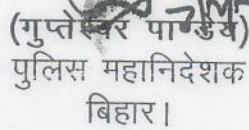 (गुप्तेश्वर पाण्डेय)
पुलिस महानिदेशक
बिहार।